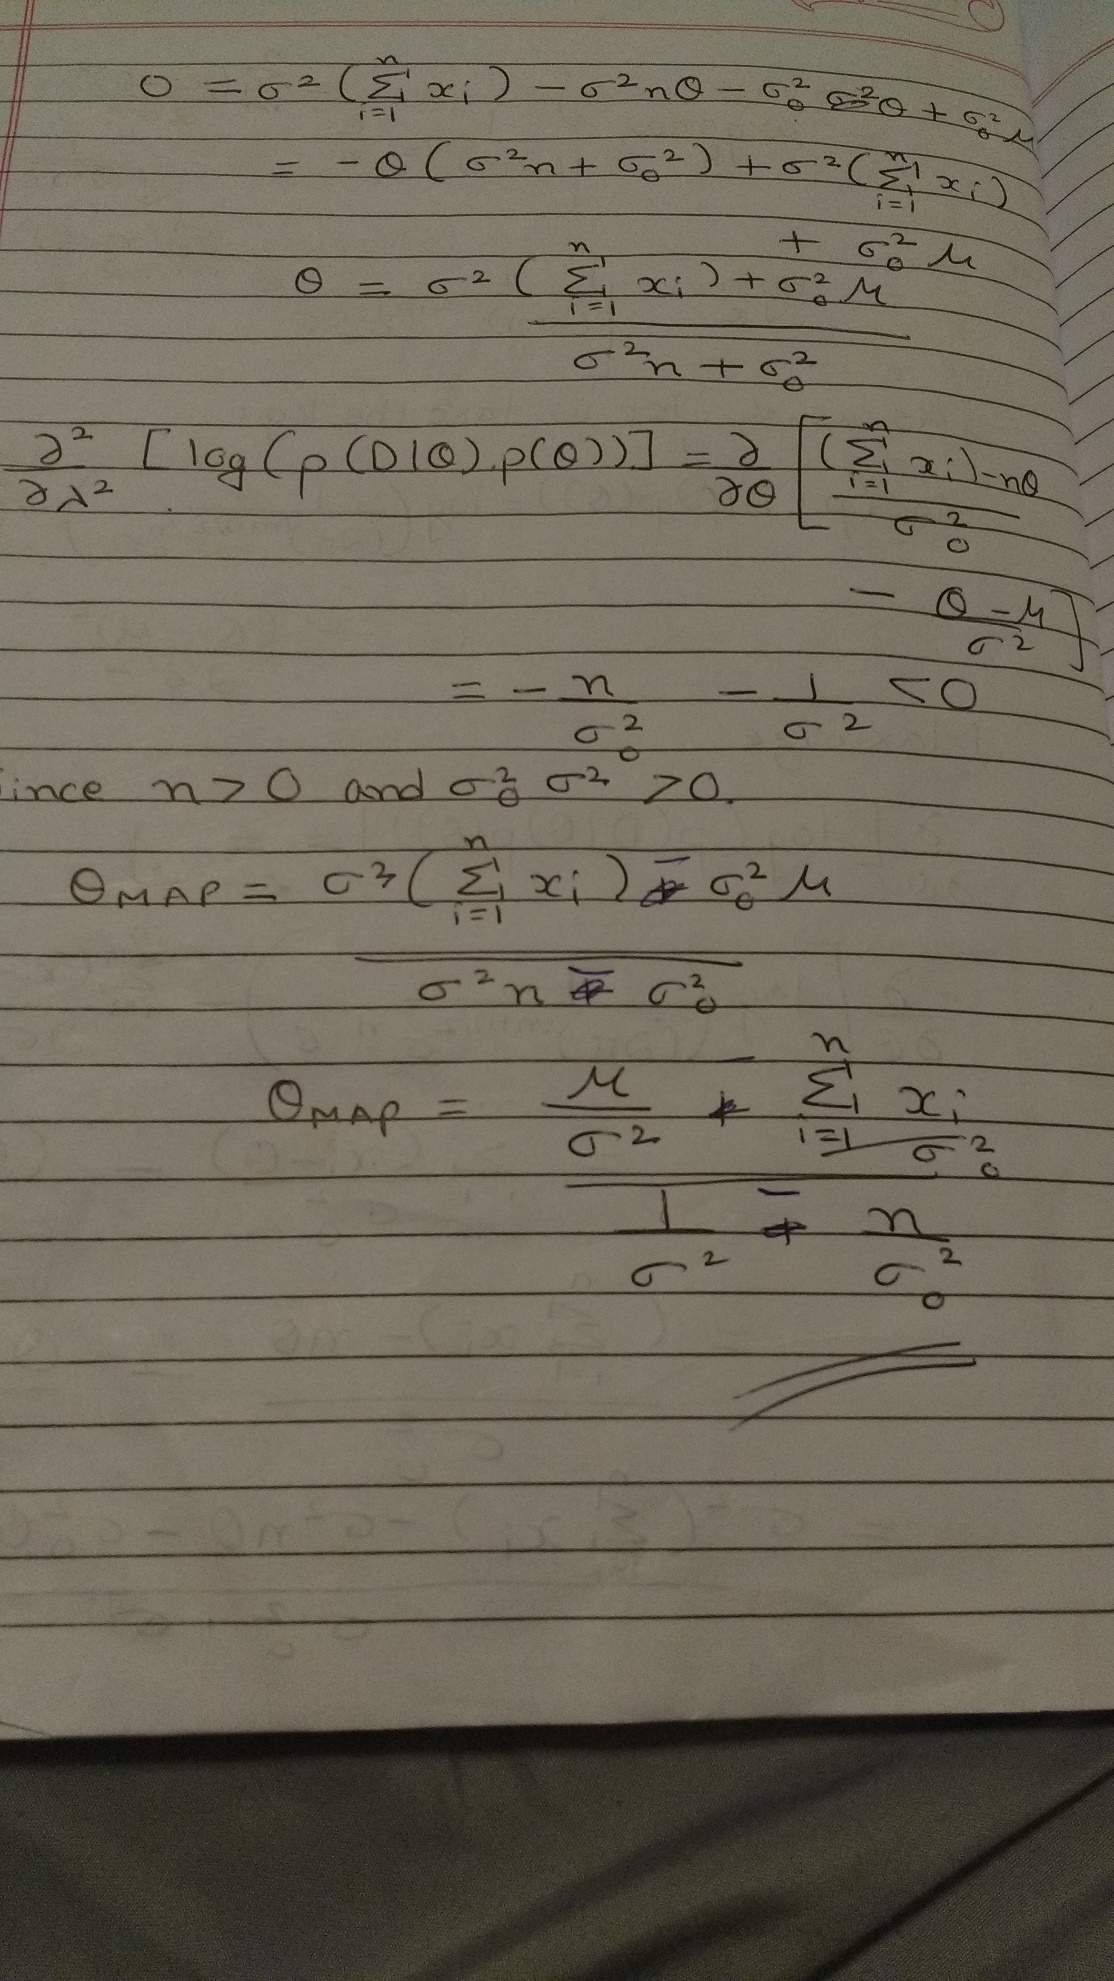 0 = σ² (Σᵢ₌₁ⁿ xᵢ) − σ²nθ − σ₀² θ + σ₀² μ
= − θ (σ²n + σ₀²) + σ² (Σᵢ₌₁ⁿ xᵢ)
+ σ₀² μ
θ = σ² (Σᵢ₌₁ⁿ xᵢ) + σ₀² μ
σ²n + σ₀²
∂²/∂λ² [log(p(D|θ).p(θ))] = ∂/∂θ [(Σᵢ₌₁ⁿ xᵢ) − nθ / σ₀²
− θ − μ / σ² ]
= − n/σ₀² − 1/σ² < 0
ince n > 0 and σ₀² σ² > 0.
θMAP = σ² (Σᵢ₌₁ⁿ xᵢ) − σ₀² μ
σ²n − σ₀²
θMAP = μ/σ² − Σᵢ₌₁ⁿ xᵢ/σ₀²
1/σ² − n/σ₀²